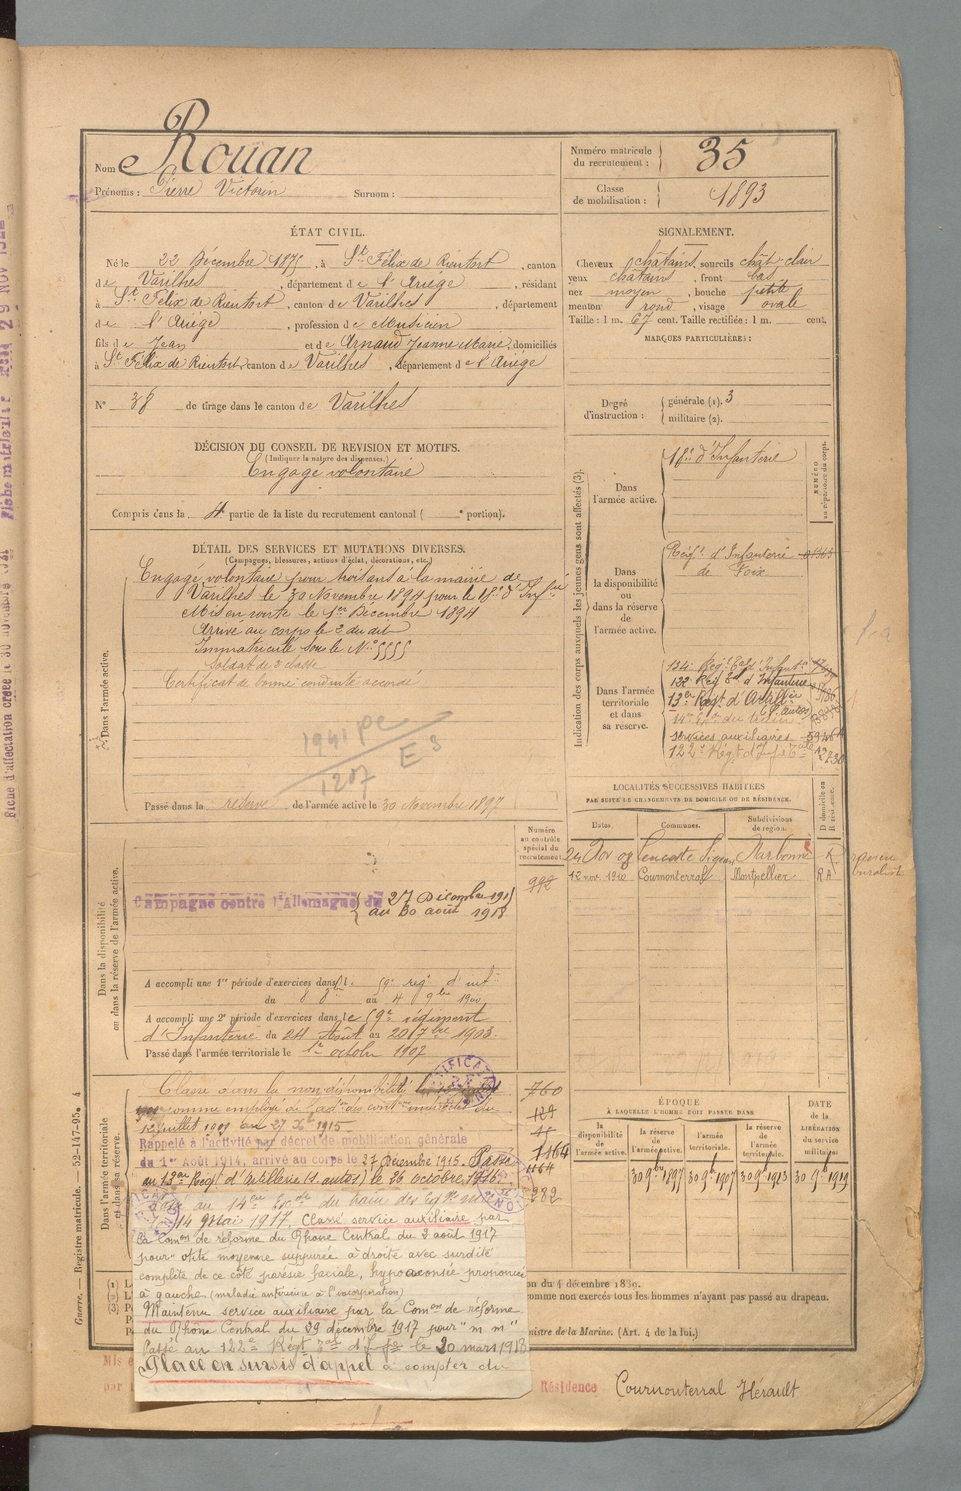 Nom Rouan
Prénoms : Pierre Victorin Surnom :
Numéro matricule du recrutement : 35
Classe de mobilisation : 1893
ÉTAT CIVIL.
Né le 22 Décembre 1875, à St Félix de Rieutort, canton
de Varilhes, département de l'Ariège, résidant
à St Félix de Rieutort, canton de Varilhes, département
de l'Ariège, profession de Musicien
fils de Jean et de Arnaud Jeanne Marie, domiciliés
à St Félix de Rieutort, canton de Varilhes, département de l'Ariège
N° 38 de tirage dans le canton de Varilhes
SIGNALEMENT.
Cheveux châtains, sourcils chât-clair
yeux chatains, front bas
nez moyen, bouche petite
menton rond, visage ovale
Taille : 1 m. 67 cent. Taille rectifiée : 1 m. cent.
MARQUES PARTICULIÈRES :
Degré d'instruction : générale (1). 3
militaire (2).
DÉCISION DU CONSEIL DE REVISION ET MOTIFS.
(Indiquer la nature des dispenses.)
Engagé volontaire
Compris dans la 4 partie de la liste du recrutement cantonal ( e portion).
DÉTAIL DES SERVICES ET MUTATIONS DIVERSES.
(Campagnes, blessures, actions d'éclat, décorations, etc.)
Dans l'armée active.
Engagé volontaire pour trois ans à la mairie de
Varilhes le 30 Novembre 1894 pour le 18e d'Infie
Mis en route le 1er Décembre 1894
Arrivé au corps le 2 du dit
Immatriculé sous le No 5555
Soldat de 2e classe
Certificat de bonne conduite accordé
1941 pc
1207 E 3
Passé dans la réserve de l'armée active le 30 Novembre 1897
Indication des corps auxquels les jeunes gens sont affectés (3).
NUMÉRO au répertoire du corps.
Dans l'armée active.
18e d'Infanterie
Dans la disponibilité ou dans la réserve de l'armée active.
Régt d'Infanterie
de Foix
Dans l'armée territoriale et dans sa réserve.
134e Régt Tal d'Infanterie
132e Rég Tal d'Infanterie
13er Régt d'Artillie
(S. autos)
14e Esc. du train
services auxiliaires
122e Régt d'Ife Tale
LOCALITÉS SUCCESSIVES HABITÉES
PAR SUITE DE CHANGEMENTS DE DOMICILE OU DE RÉSIDENCE.
Dates. Communes. Subdivisions de région. D domicile ou R résidence.
24 Nov 08 Leucate Sigean Narbonne R
12 nov. 1910 Cournonterral Montpellier RA
Dans la disponibilité ou dans la réserve de l'armée active.
Numéro au contrôle spécial du recrutement
992
Campagne contre l'Allemagne du 27 Décembre 1915
au 30 août 1918
A accompli une 1re période d'exercices dans le 59e rég d'inf
du 8 8bre au 4 9bre 1900
A accompli une 2e période d'exercices dans le 59e régiment
d'Infanterie du 24 Août au 20 7bre 1903.
Passé dans l'armée territoriale le 1er octobre 1907
Dans l'armée territoriale et dans sa réserve.
Classé dans la non disponibilité
comme employé à l'adon des contons indirectes du
12 juillet 1901 au 27 Xbre 1915
Rappelé à l'activité par décret de mobilisation générale
du 1er Août 1914, arrivé au corps le 27 Décembre 1915. Passé
au 13er Régt d'Artillerie (s. autos) le 26 octobre 1916.
au 14e Escon du train des Eqges mil
14 Mai 1917. Classé service auxiliaire par
la Comon de réforme du Rhône Central du 2 août 1917
pour "otite moyenne suppurée à droite avec surdité
complète de ce côté parésie faciale, hypoacousie prononcée
à gauche (maladie antérieure à l'incorporation)
Maintenu service auxiliaire par la Comon de réforme
du Rhône Central du 29 décembre 1917 pour "m m"
Passé au 122e Régt Tal d'Ife le 20 mars 1918
Placé en sursis d'appel à compter du
760
7164
1164
282
ÉPOQUE
À LAQUELLE L'HOMME DOIT PASSER DANS
la disponibilité de l'armée active. la réserve de l'armée active. l'armée territoriale. la réserve de l'armée territoriale.
DATE de la LIBÉRATION du service militaire.
30 9bre 1897 30 9bre 1907 30 9bre 1913 30 9bre 1919
on du 4 décembre 1889.
comme non exercés tous les hommes n'ayant pas passé au drapeau.
nistre de la Marine. (Art. 4 de la loi.)
Guerre. — Registre matricule. — 52-147-95. 4
Résidence Cournonterral Hérault